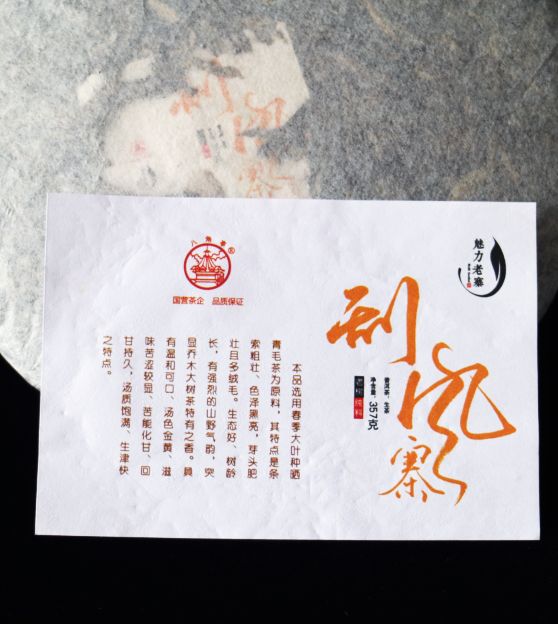 魅力老寨
刮风寨
普洱茶．生茶
净含量：357克
老树 纯料
八角亭®
国营茶企 品质保证
本品选用春季大叶种晒
青毛茶为原料，其特点是条
索粗壮、色泽黑亮，芽头肥
壮且多绒毛。生态好、树龄
长，有强烈的山野气韵，突
显乔木大树茶特有之香。具
有温和可口、汤色金黄、滋
味苦涩较显、苦能化甘、回
甘持久，汤质饱满、生津快
之特点。